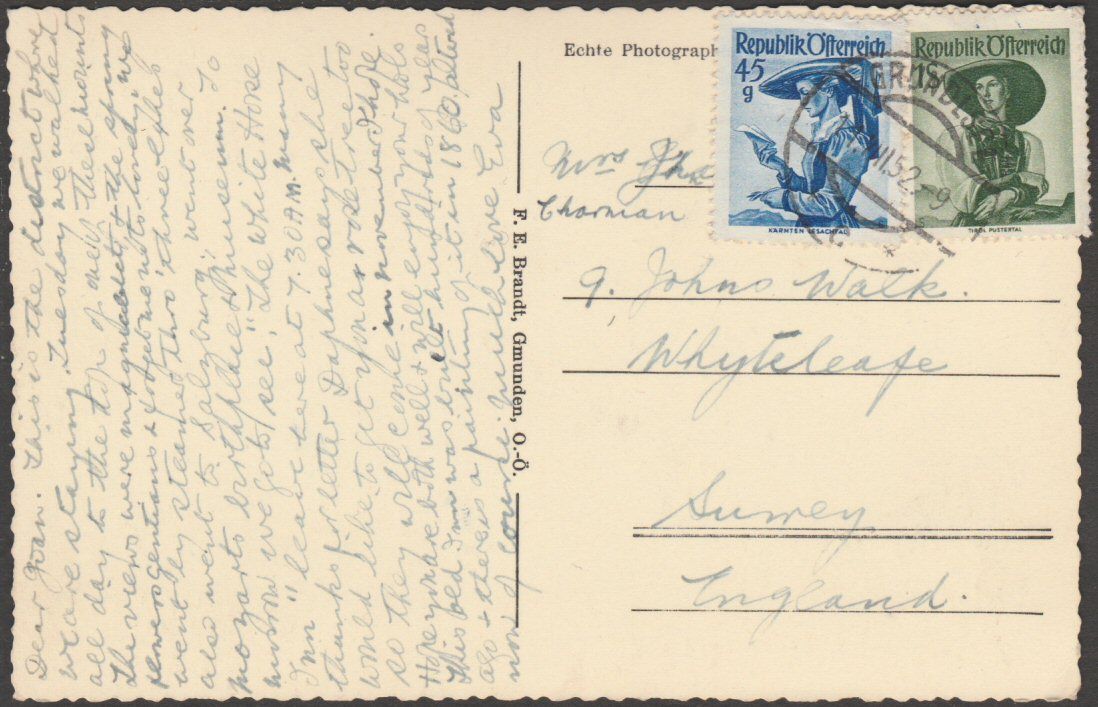 Dear Joan. This is the district where
we are staying, Tuesday we walked
all day to the top of one of these mounts
The views were magnificent, & the spring
flowers gentians & so gay
went by steamer thro' three lakes
also went to Salzburg, went over to
Mozarts birthplace & Museum.
morrow we go to see "The White Horse
Inn" leave here at 7.30 A.M. Many
thanks for letter Daphne says she
would like to get you a rose tree too
so they will come in November I hope.
Hope you are both well & will enjoy your hols
This bed Inn was built hundreds of years
ago & there is a painting of it in 1860, altered
now of course. Much love Eva
Echte Photograph
F. E. Brandt, Gmunden, O.-Ö.
Republik Österreich
45
g
KÄRNTEN LESACHTAL
Republik Österreich
1S
TIROL PUSTERTAL
VI.52.-9
Mrs
Charman
9. Johns Walk.
Whyteleafe
Surrey
England.